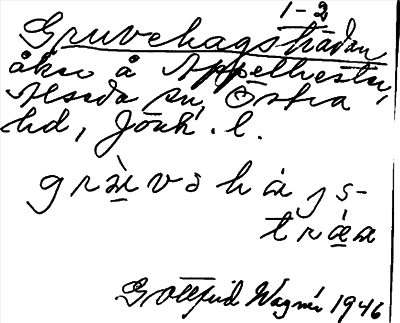 1-2
Gruvehagsträdan
åker å Appelhester,
Alseda sn, Östra
hd, Jönk. l.
grùvəhàgs-
träa
Gottfrid Wagnér 1946